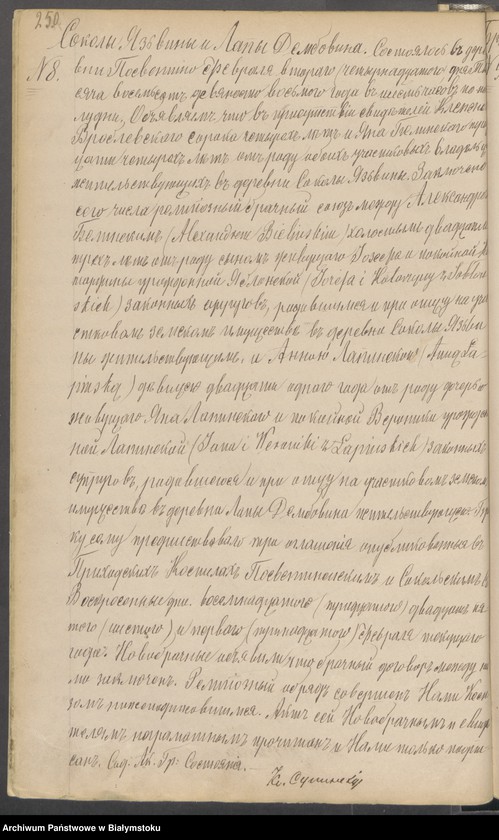 250.
Соколы Язвины и Лапы Дембовина. Состоялось въ дере
№ 8. вни Посвентно Февраля втораго (четырнадцатаго) дня Ты
сяча восемсотъ девяносто восьмого года въ часовъ по по
лудни. Объявляемъ, что въ присутствіи свидѣтелей
Врослевскаго сорока четырехъ лѣтъ и Яна трид
цати четырехъ лѣтъ отъ роду обоихъ участковыхъ владѣльц
жительствующихъ въ деревни Соколы Язвины. Заключенъ
сего числа религіозный брачный союзъ между Александро
Бѣлинскимъ (Alexandrem Bielińskim) холостымъ двадцати
трехъ лѣтъ отъ роду сыномъ живущаго Іозефа и покойной
урожденной Яблонской (Józefa i z Jabłoń
skich) законныхъ супруговъ, родившимся и при отцу на уча
стковомъ земскомъ имуществѣ въ деревни Соколы Язви
ны жительствующимъ, и Анною Лапинскою (Anną Ła
pińską) дѣвицею двадцати одного года отъ роду дочерью
живущаго Яна Лапинскаго и покойной Вероники урожден
ной Лапинской (Jana i Weroniki z Łapińskich) законныхъ
супруговъ, родившеюся и при отцу на участковомъ земском
имуществѣ въ деревни Лапы Дембовина жительствующею. Бра
ку сему предшествовало три оглашенія опубликованныя въ
Приходскихъ Костелахъ Посвентненскимъ и Сокольскимъ въ
Воскресные дни восемнадцатаго (тридцатаго) двадцать пя
таго (шестаго) и перваго (тринадцатаго) Февраля текущаго
года. Новобрачные объявили, что брачный договоръ между ни
ми заключенъ. Религіозный обрядъ совершенъ Нами Ксен
дзомъ нижеподписавшимся. Актъ сей Новобрачнымъ и свидѣ
телямъ неграмотнымъ прочитанъ и Нами только подпи
санъ. Сод. Ак. Гр: Состоянія.
Кс. Сушинскій
Archiwum Państwowe w Białymstoku